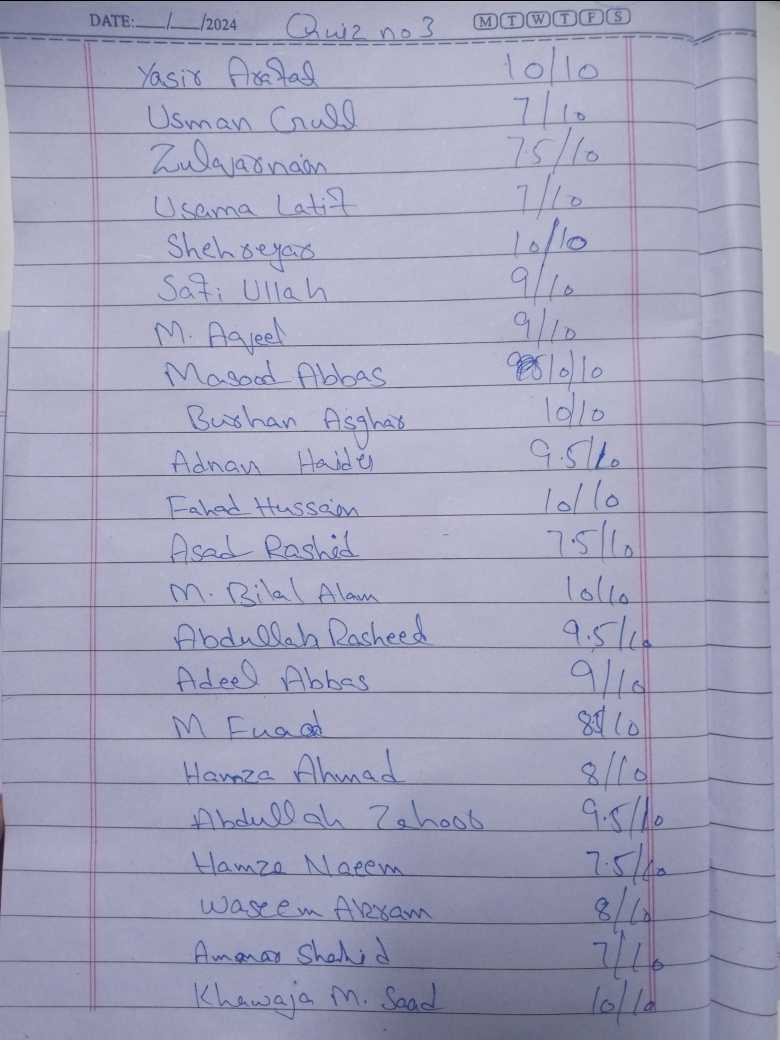 DATE:___/___/2024 Quiz no 3 M T W T F S
Yasir Arafat 10/10
Usman Gull 7/10
Zulqarnain 7.5/10
Usama Latif 7/10
Shehreyar 10/10
Safi Ullah 9/10
M. Aqeel 9/10
Masood Abbas 10/10
Burhan Asghar 10/10
Adnan Haider 9.5/10
Fahad Hussain 10/10
Asad Rashid 7.5/10
M. Bilal Alam 10/10
Abdullah Rasheed 9.5/10
Adeel Abbas 9/10
M Fuaad /10
Hamza Ahmad 8/10
Abdullah Zahoor 9.5/10
Hamza Naeem 7.5/10
Waseem Akram 8/10
Ammar Shahid 7/10
Khawaja M. Saad 10/10